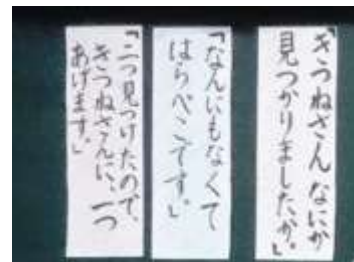 「きつねさん なにか
見つかりましたか。」
「なんにもなくて
はらぺこです。」
「二つ見つけたので、
きつねさんに、一つ
あげます。」